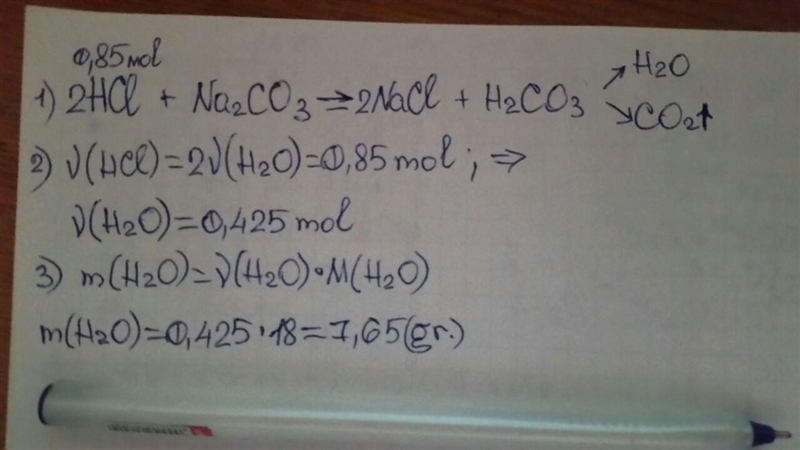 0,85mol
1) 2HCl + Na2CO3 ⇒ 2NaCl + H2CO3 ↗ H2O
↘ CO2↑
2) ν(HCl)=2ν(H2O)=0,85 mol ; ⇒
ν(H2O)=0,425 mol
3) m(H2O)=ν(H2O)•M(H2O)
m(H2O)=0,425•18=7,65(gr.)